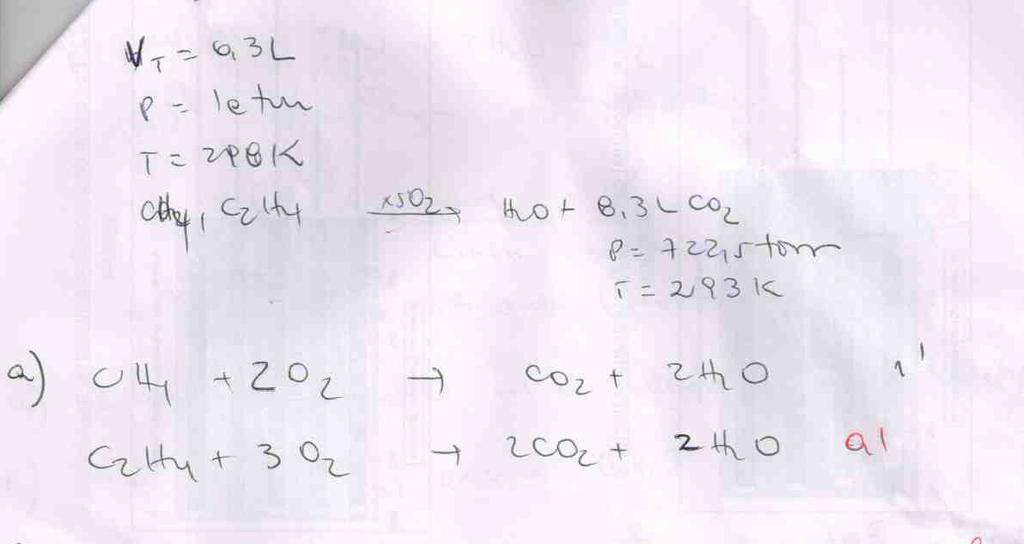 V_T = 6,3L
P = 1 atm
T = 298K
CH4, C2H4 xsO2→ H2O + 8,3L CO2
P = 722,5 torr
T = 293K
a) CH4 + 2O2 → CO2 + 2H2O 1'
C2H4 + 3O2 → 2CO2 + 2H2O a1